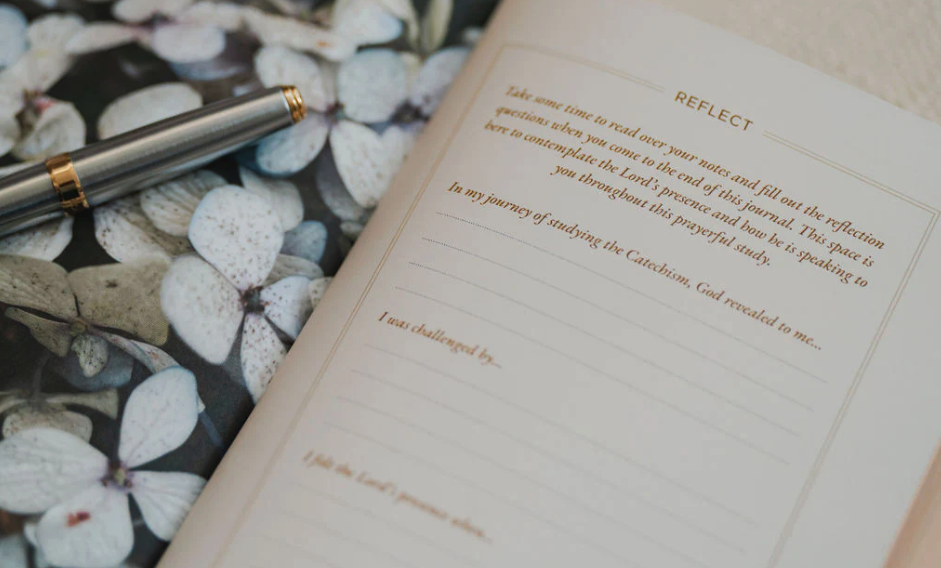 REFLECT
Take some time to read over your notes and fill out the reflection
questions when you come to the end of this journal. This space is
here to contemplate the Lord's presence and how he is speaking to
you throughout this prayerful study.
In my journey of studying the Catechism, God revealed to me...
I was challenged by...
I felt the Lord's presence when...